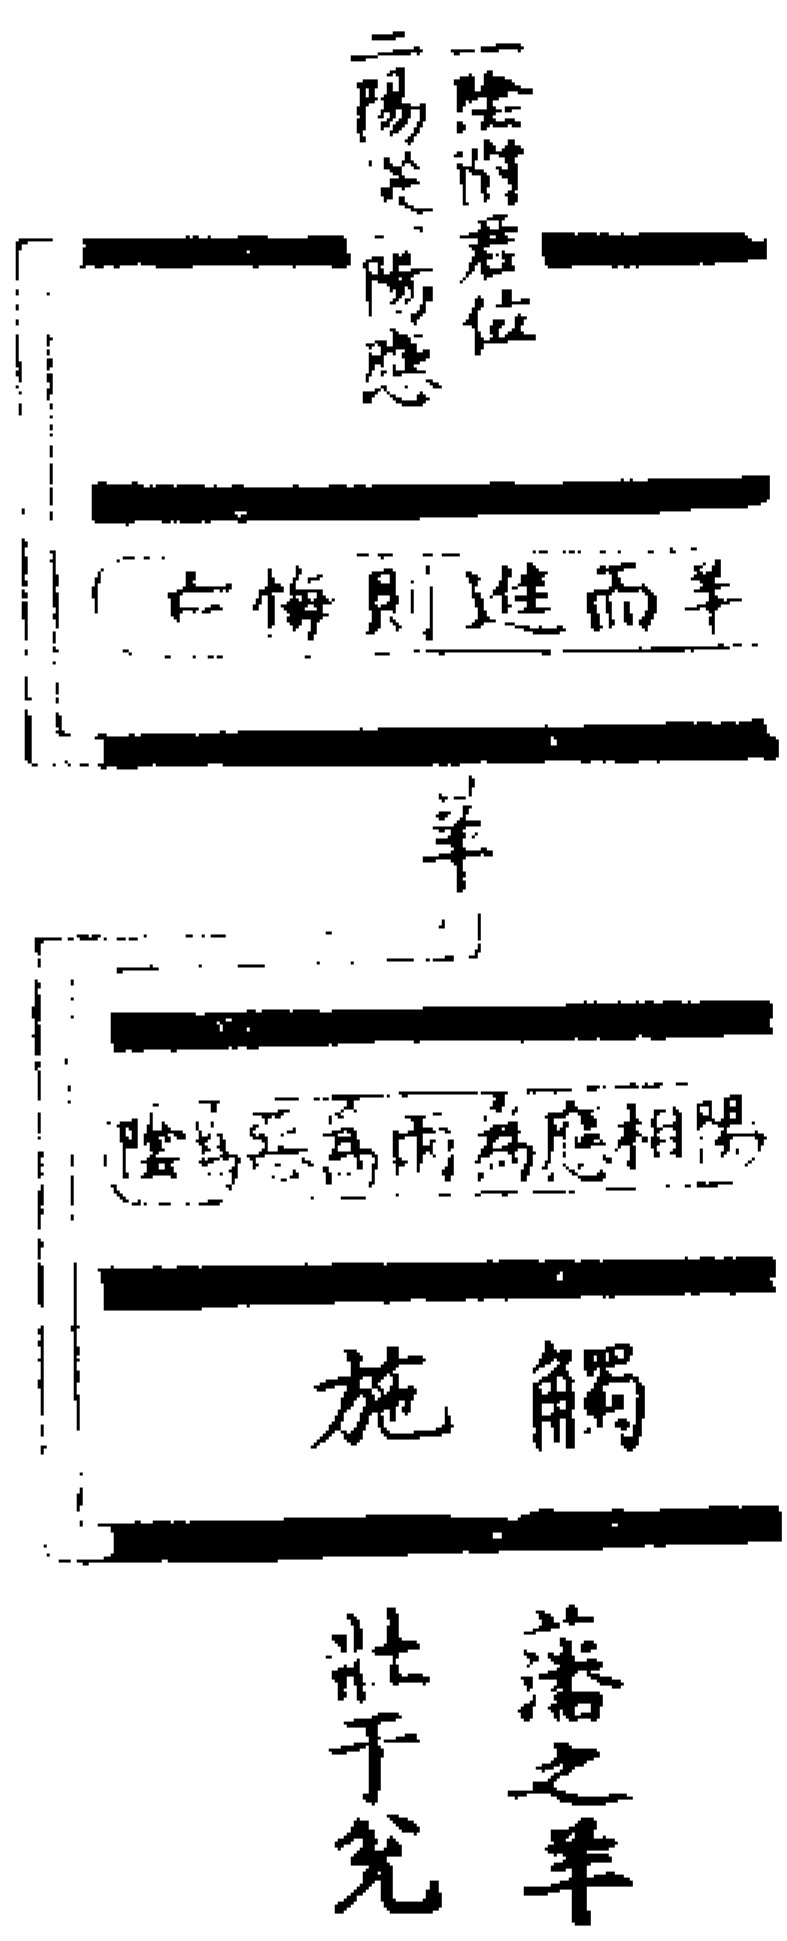 一陰附君位
二陽陽應
羊而進則悔亡
羊
陽相應為雨為為陰
觸藩之羊
施壯于兌